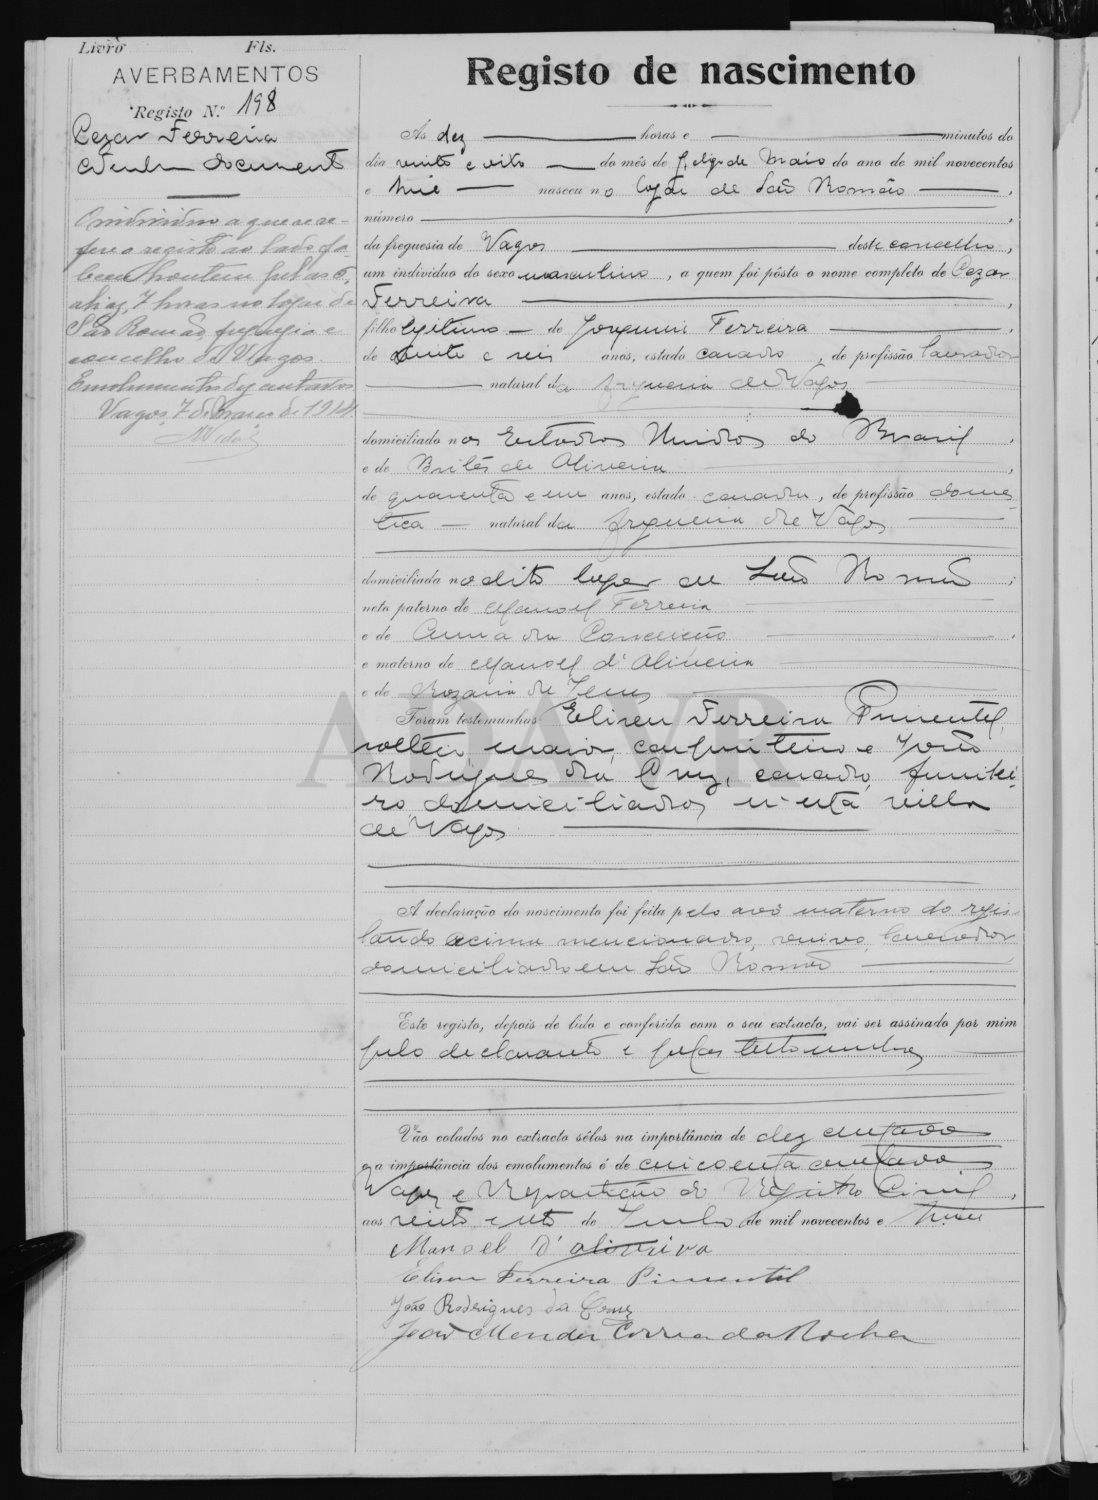 Livro Fls.
AVERBAMENTOS
Registo N.º 198
Cezar Ferreira
Nenhum documento
O individuo a que se re-
fere o registo ao lado fa-
leceu hontem pelas
7 horas no logar de
São Romão, freguezia e
concelho de Vagos.
Emolumentos dez centavos
Vagos, 7 de Março de 1914.
Registo de nascimento
Às dez horas e minutos do
dia vinte e oito do mês de Maio do ano de mil novecentos
e nasceu no logar de São Romão,
número
da freguesia de Vagos deste concelho,
um individuo do sexo masculino, a quem foi pôsto o nome completo de Cezar
Ferreira,
filho legitimo de Joaquim Ferreira
de anos, estado casado, de profissão lavrador
natural da freguezia de Vagos
domiciliado nos Estados Unidos do Brazil,
e de Brites de Oliveira,
de quarenta e um anos, estado casada, de profissão domes-
tica natural da freguezia de Vagos
domiciliada no dito logar de São Romão;
neto paterno de Manoel Ferreira
e de Anna da Conceição,
e materno de Manoel d'Oliveira
e de Rozaria de Jesus
Foram testemunhas Elizeu Ferreira Pimentel,
solteiro, maior, carpinteiro e João
Rodrigues da Cruz, casado, funilei-
ro, domiciliados n'esta villa
de Vagos.
ADAVR
A declaração do nascimento foi feita pelo avô materno do regis-
tando acima mencionado, viuvo, lavrador
domiciliado em São Romão
Este registo, depois de lido e conferido com o seu extracto, vai ser assinado por mim
pelo declarante e pelas testemunhas
Vão colados no extracto sêlos na importância de dez centavos
e a importância dos emolumentos é de cincoenta centavos
Vagos e Repartição do Registo Civil,
aos vinte e de Junho de mil novecentos e
Manoel d'Oliveira
Elizeu Ferreira Pimentel
João Rodrigues da Cruz
João Mendes Correa da Rocha